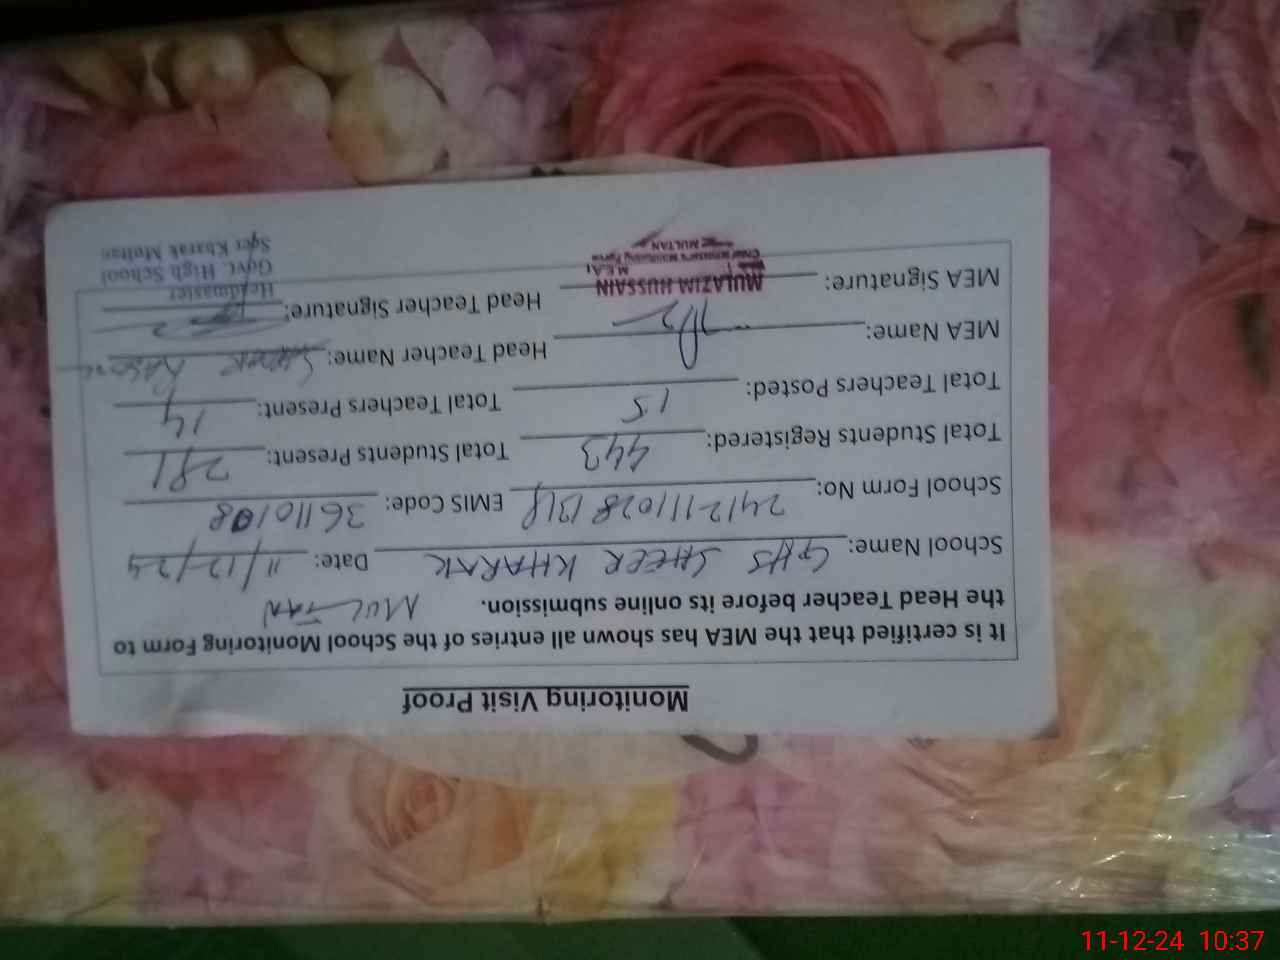 Monitoring Visit Proof
It is certified that the MEA has shown all entries of the School Monitoring Form to
the Head Teacher before its online submission. MULTAN
School Name: GHS SHEER KHARAK Date: 11/12/24
School Form No: EMIS Code: 36110108
Total Students Registered: 443 Total Students Present: 281
Total Teachers Posted: 15 Total Teachers Present: 14
MEA Name: Head Teacher Name:
MEA Signature: Head Teacher Signature:
MULAZIM HUSSAIN
M.E.A
MULTAN
Headmaster
Govt. High School
Kharak Multan
11-12-24 10:37